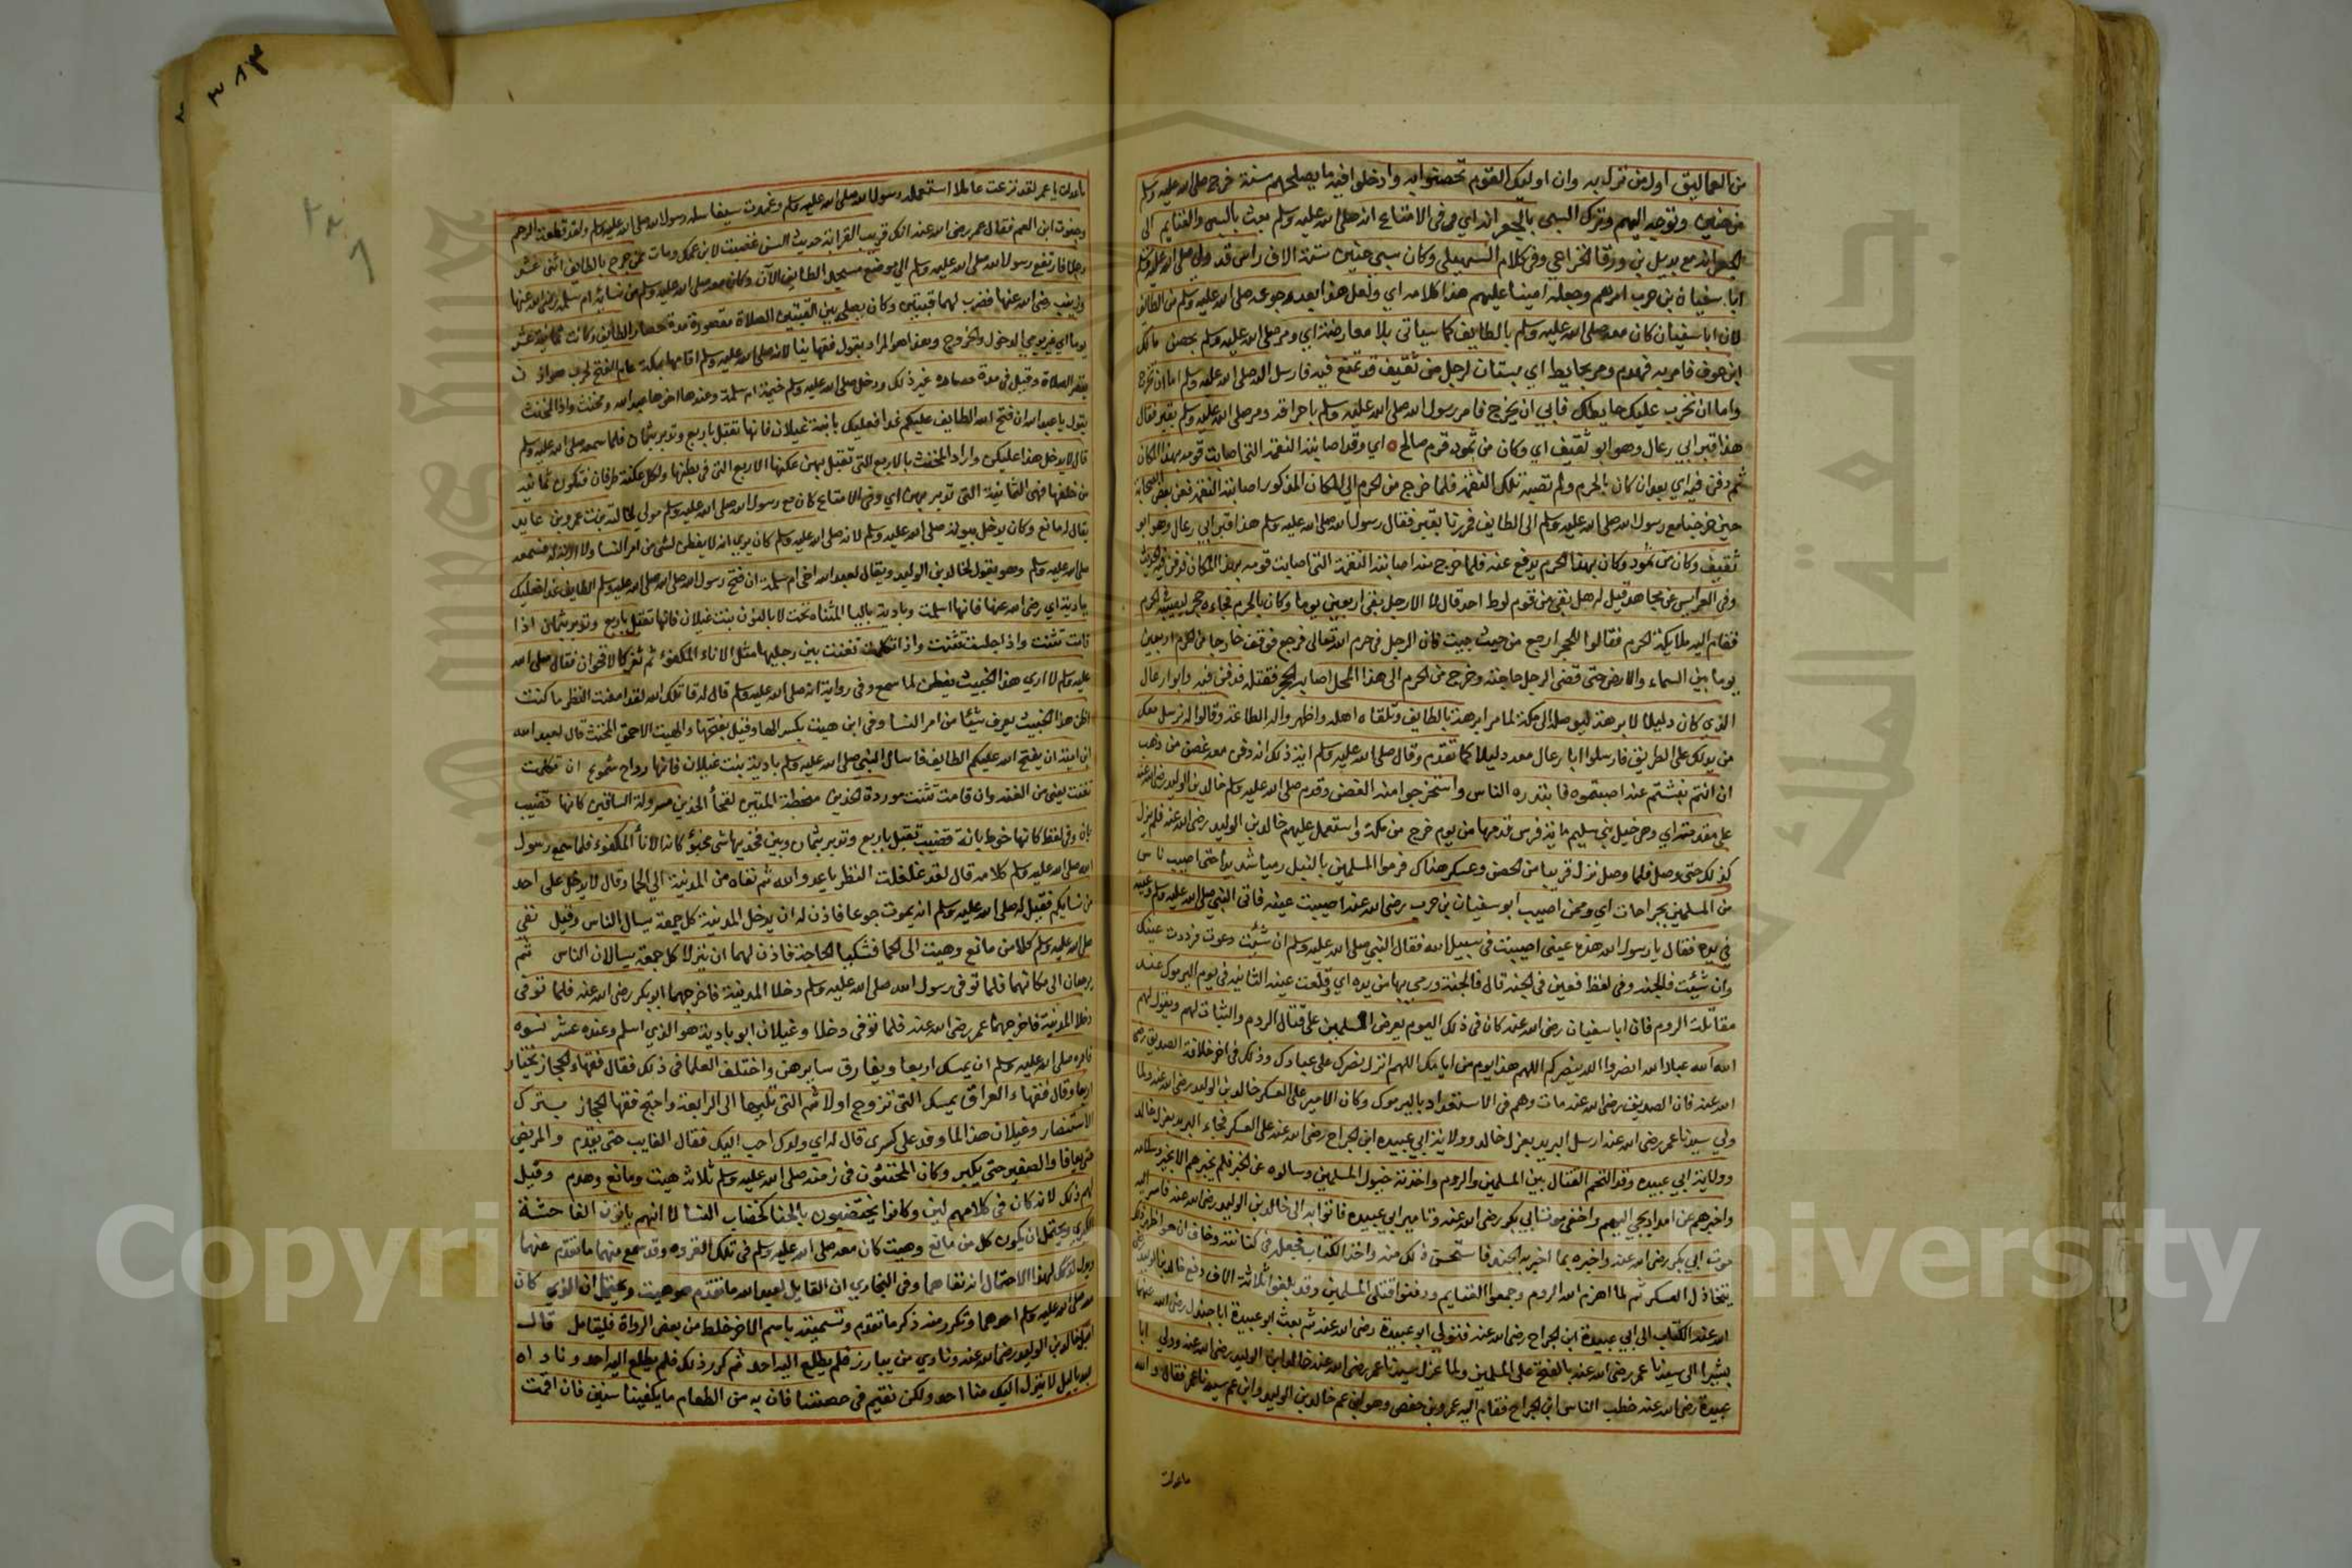 من العماليق اول من نزل به وان اوليك القوم تحصنوا به وادخلوا فيه ما يصلحهم سنة خرج صلى الله عليه وسلم
من حنين وتوجه اليهم وترك السبى بالجعرانة اي وفى الامتاع انه صلى الله عليه وسلم بعث بالسبى والغنايم الى
الجعرانة مع بديل بن ورقا الخزاعى وفى كلام السهيلى وكان سبى حنين ستة الاف راس قد ولى صلى الله عليه وسلم
ابا سفيان بن حرب امرهم وجعله امينا عليهم هذا كلامه اي ولعل هذا بعد رجوعه صلى الله عليه وسلم من الطائف
لان ابا سفيان كان معه صلى الله عليه وسلم بالطايف كما سياتى بلا معارضة اي ومر صلى الله عليه وسلم بحصن مالك
ابن عوف فامر به فهدم ومر بحايط اي بستان لرجل من ثقيف قد تمنع فيه فارسل اليه صلى الله عليه وسلم اما ان تخرج
واما ان نخرب عليك حايطك فابى ان يخرج فامر رسول الله صلى الله عليه وسلم باحراقه ومر صلى الله عليه وسلم بقبر فقال
هذا قبر ابى رعال وهو ابو ثقيف اي وكان من ثمود قوم صالح اي وقد اصابته النقمة التى اصابت قومه بهذا المكان
ثم دفن فيه اي بعد ان كان بالحرم ولم تصبه تلك النقمة فلما خرج من الحرم الى المكان المذكور اصابته النقمة فعن بعض الصحابة
حين خرجنا مع رسول الله صلى الله عليه وسلم الى الطايف فمررنا بقبر فقال رسول الله صلى الله عليه وسلم هذا قبر ابى رعال وهو ابو
ثقيف وكان من ثمود وكان بهذا الحرم يدفع عنه فلما خرج منه اصابته النقمة التى اصابت قومه بهذا المكان فدفن فيه الحديث
وفى العرايس عن مجاهد قيل له هل بقى من قوم لوط احد قال لا الا رجل بقى اربعين يوما وكان بالحرم فجاءه حجر ليصيبه بالحرم
فقام اليه ملايكة الحرم فقالوا للحجر ارجع من حيث جيت فان الرجل فى حرم الله تعالى فرجع فوقف خارجا من الحرم اربعين
يوما بين السماء والارض حتى قضى الرجل حاجته وخرج من الحرم الى هذا المحل اصابه الحجر فقتله فدفن فيه وابو رعال
الذي كان دليلا لابرهة ليوصله الى مكة لما مر ابرهة بالطايف وتلقاه اهله واظهروا له الطاعة وقالوا له نرسل معك
من يدلك على الطريق فارسلوا ابا رعال معه دليلا كما تقدم وقال صلى الله عليه وسلم اية ذلك انه دفن معه غصن من ذهب
ان انتم نبشتم عنه اصبتموه فابتدره الناس واستخرجوا منه الغصن وقدم صلى الله عليه وسلم خالد بن الوليد رضى الله عنه
على مقدمته اي وهى خيل بنى سليم ماية فرس قدمها من يوم خرج من مكة واستعمل عليهم خالد بن الوليد رضى الله عنه فلم يزل
كذلك حتى وصل فلما وصل نزل قريبا من الحصن وعسكر هناك فرموا المسلمين بالنبل رميا شديدا حتى اصيب ناس
من المسلمين بجراحات اي وممن اصيب ابو سفيان بن حرب رضى الله عنه اصيبت عينه فاتى النبى صلى الله عليه وسلم وعينه
فى يده فقال يا رسول الله هذه عينى اصيبت فى سبيل الله فقال النبى صلى الله عليه وسلم ان شئت دعوت فردت عينك
وان شيت فالجنة وفى لفظ فعين فى الجنة قال فالجنة ورمى بها من يده اي وقلعت عينه الثانية فى يوم اليرموك عند
مقاتلة الروم فان ابا سفيان رضى الله عنه كان فى ذلك اليوم يحرض المسلمين على قتال الروم والثبات لهم ويقول لهم
الله الله عباد الله انصروا الله ينصركم اللهم هذا يوم من ايامك اللهم انزل نصرك على عبادك وذلك فى اخر خلافة الصديق رضى
الله عنه فان الصديق رضى الله عنه مات وهم فى الاستعداد باليرموك وكان الامير على العسكر خالد بن الوليد رضى الله عنه ولما
ولى سيدنا عمر رضى الله عنه ارسل البريد بعزل خالد وولاية ابى عبيدة ابن الجراح رضى الله عنه على العسكر فجاء البريد بعزل خالد
وولاية ابى عبيدة وقد التحم القتال بين المسلمين والروم واخذته خيول المسلمين وسالوه عن الخبر فلم يخبرهم الا بخير وسلامة
واخبرهم عن امداد يجى اليهم واخفى موت ابى بكر رضى الله عنه وتامير ابى عبيدة فاتوا به الى خالد بن الوليد رضى الله عنه فاسر اليه
موت ابى بكر رضى الله عنه واخبره بما اخبر به الجند فاستحسن ذلك منه واخذ الكتاب فجعله فى كنانته وخاف ان هو اظهر ذلك
يتخاذل العسكر ثم لما اهزم الله الروم وجمعوا الغنايم ودفنوا قتلى المسلمين وقد بلغوا ثلاثة الاف دفع خالد بن الوليد
الله عنه الكتاب الى ابى عبيدة ابن الجراح رضى الله عنه فتولى ابو عبيدة رضى الله عنه ثم بعث ابو عبيدة ابا جندل رضى الله عنهما
بشيرا الى سيدنا عمر رضى الله عنه بالفتح على المسلمين ولما عزل سيدنا عمر رضى الله عنه خالد ابن الوليد رضى الله عنه وولى ابا
عبيدة رضى الله عنه خطب الناس ابن الجراح فقام اليه عمرو بن حفص وهو ابن عم خالد بن الوليد وابن عم سيدنا عمر فقال والله
ما عدلت
ما عدلت يا عمر لقد نزعت عاملا استعمله رسول الله صلى الله عليه وسلم وغمدت سيفا سله رسول الله صلى الله عليه وسلم ولقد قطعت الرحم
وجفوت ابن العم فقال عمر رضى الله عنه انك قريب القرابة حديث السن غضبت لابن عمك ومات ممن جرح بالطايف اثنى عشر
رجلا فارتفع رسول الله صلى الله عليه وسلم الى موضع مسجد الطايف الآن وكان معه صلى الله عليه وسلم من نسائه ام سلمة رضى الله عنها
وزينب رضى الله عنها فضرب لهما قبتين وكان يصلى بين القبتين الصلاة مقصورة مدة حصار الطائف وكانت ثمانية عشر
يوما اي غير يومى الدخول والخروج وهذا هو المراد بقول فقهاينا لانه صلى الله عليه وسلم اقامها بمكة عام الفتح لحرب هوازن
يقصر الصلاة وقيل فى مدة حصاره غير ذلك ودخل صلى الله عليه وسلم خيمة ام سلمة وعندها اخوها عبد الله ومخنث واذا المخنث
يقول يا عبد الله ان فتح الله الطايف عليكم غدا فعليك بابنة غيلان فانها تقبل باربع وتدبر بثمان فلما سمعه صلى الله عليه وسلم
قال لا يدخل هذا عليكن واراد المخنث بالاربع التى تقبل بهن عكنها الاربع التى فى بطنها ولكل عكنة طرفان فتكون ثمانية
من خلفها فهى الثمانية التى تدبر بهن اي وفى الامتاع كان مع رسول الله صلى الله عليه وسلم مولى لخالته بنت عمرو بن عايد
يقال له ماتع وكان يدخل بيوته صلى الله عليه وسلم لانه صلى الله عليه وسلم كان يرى انه لا يفطن لشى من امر النسا ولا اربة له فسمعه
صلى الله عليه وسلم وهو يقول لخالد بن الوليد ويقال لعبد الله اخى ام سلمة ان فتح رسول الله صلى الله عليه وسلم الطايف غدا فعليك
ببادية اي رضى الله عنها فانها اسلمت وبادية باليا المثناة تحت لا بالنون بنت غيلان فانها تقبل باربع وتدبر بثمان اذا
قامت تثنت واذا جلست تبنت واذا تكلمت تغنت بين رجليها مثل الاناء المكفوء ثم ثغر كالاقحوان فقال صلى الله
عليه وسلم لا اري هذا الخبيث يفطن لما سمع وفى رواية انه صلى الله عليه وسلم قال له قاتلك الله لقد امعنت النظر ما كنت
اظن هذا الخبيث يعرف شيئا من امر النسا وفى ابن هيت بكسر الها وقيل بفتحها والهيت الاحمق المخنث قال لعبد الله
ابن امية ان يفتح الله عليكم الطايف فاسال النبى صلى الله عليه وسلم بادية بنت غيلان فانها رداح شموع ان تكلمت
تغنت يعنى من الغنة وان قامت تثنت موردة الخدين منحطة المتنين لفجأ الفخذين مسرولة الساقين كانها قضيب
بان وفى لفظ كانها خوط بانة قصيب تقبل باربع وتدبر بثمان وبين فخذيها شى مخبؤ كانه الانأ المكفوء فلما سمع رسول
الله صلى الله عليه وسلم كلامه قال لقد غلغلت النظر يا عدو الله ثم نفاه من المدينة الى الحما وقال لا يدخل على احد
من نسايكم فقيل له صلى الله عليه وسلم انه يموت جوعا فاذن له ان يدخل المدينة كل جمعة يسال الناس وقيل نفى
صلى الله عليه وسلم كلا من ماتع وهيت الى الحما فشكيا الحاجة فاذن لهما ان ينزلا كل جمعة يسالان الناس ثم
يرجعان الى مكانهما فلما توفى رسول الله صلى الله عليه وسلم دخلا المدينة فاخرجهما ابو بكر رضى الله عنه فلما توفى
دخلا المدينة فاخرجهما عمر رضى الله عنه فلما توفى دخلا وغيلان ابو بادية هو الذي اسلم وعنده عشر نسوة
فامره صلى الله عليه وسلم ان يمسك اربعا ويفارق سايرهن واختلف العلما فى ذلك فقال فقهاء الحجاز يختار
اربعا وقال فقهاء العراق يمسك التى تزوج اولا ثم التى تليها الى الرابعة واحتج فقها الحجاز بترك
الاستفصار وغيلان هذا لما وفد على كسرى قال له اي ولدك احب اليك فقال الغايب حتى يقدم والمريض
حتى يعافا والصغير حتى يكبر وكان المخنثون فى زمنه صلى الله عليه وسلم ثلاثة هيت وماتع وهدم وقيل
لهم ذلك لانه كان فى كلامهم لين وكانوا يختضبون بالحنا كخضاب النسا لا انهم ياتون الفاحشة
الكبرى ويحتمل ان يكون كل من ماتع وهيت كان معه صلى الله عليه وسلم فى تلك الغزوة وقد سمع منهما ما تقدم عنهما
ويدل لهذا الاحتمال انه نفاهما وفى البخاري ان القايل لعبد الله ما تقدم هو هيت ويحتمل ان الذي كان
معه صلى الله عليه وسلم احدهما وتكرر منه ذكر ما تقدم وتسميته باسم الاخر خلط من بعض الرواة فليتامل قال
خالد بن الوليد رضى الله عنه ونادي من يبارز فلم يطلع اليه احد ثم كرر ذلك فلم يطلع اليه احد وناداه
عبد ياليل لا ينزل اليك منا احد ولكن نقيم فى حصننا فان به من الطعام ما يكفينا سنين فان اقمت
Copyright © King Saud University